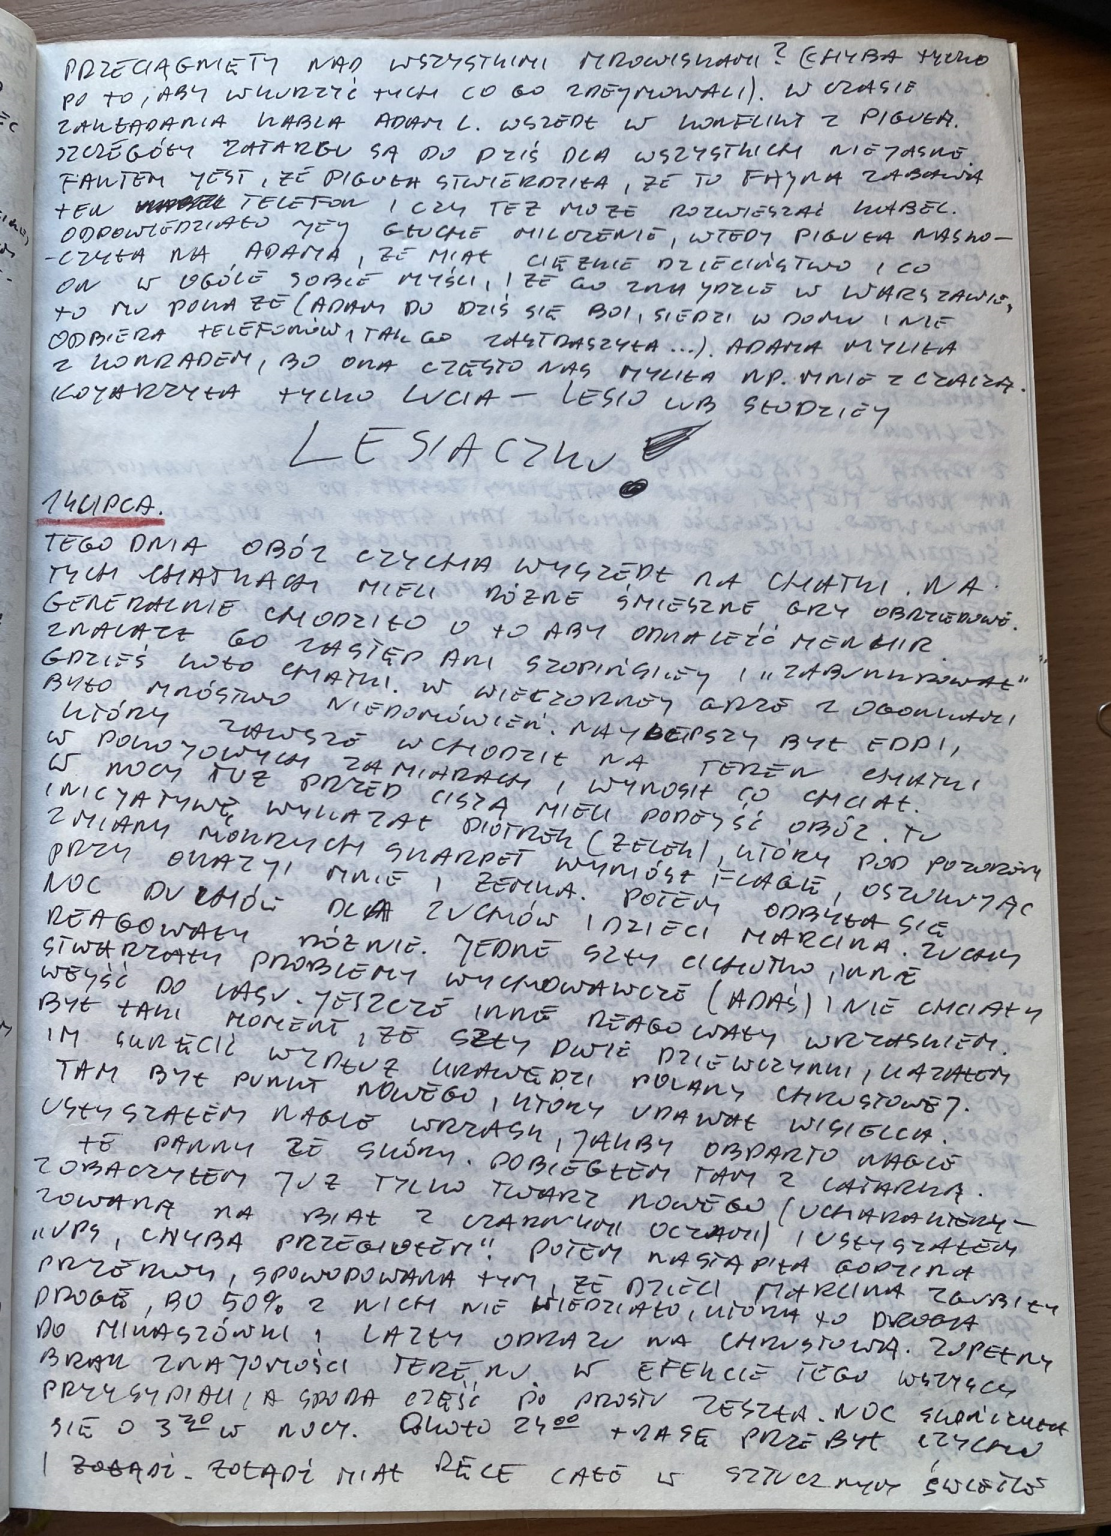 PRZECIĄGNIĘTY NAD WSZYSTKIMI MROWISKAMI? (CHYBA TYLKO
PO TO, ABY WKURZYĆ TYCH CO GO ZDEJMOWALI). W CZASIE
ZAKŁADANIA KABLA ADAM L. WSZEDŁ W KONFLIKT Z PIGUŁĄ.
SZCZEGÓŁY ZATARGU SĄ DO DZIŚ DLA WSZYSTKICH NIEJASNE.
FAKTEM JEST, ŻE PIGUŁA STWIERDZIŁA, ŻE TO FAJNA ZABAWA
TEN TELEFON I CZY TEŻ MOŻE ROZWIESZAĆ KABEL.
ODPOWIEDZIAŁO JEJ GŁUCHE MILCZENIE, WTEDY PIGUŁA NASKO-
-CZYŁA NA ADAMA, ŻE MIAŁ CIĘŻKIE DZIECIŃSTWO I CO
ON W OGÓLE SOBIE MYŚLI, I ŻE GO ZNAJDZIE W WARSZAWIE,
TO MU POKAŻE (ADAM DO DZIŚ SIĘ BOI, SIEDZI W DOMU I NIE
ODBIERA TELEFONÓW, TAK GO ZASTRASZYŁA...). ADAMA MYLIŁA
Z KONRADEM, BO ONA CZĘSTO NAS MYLIŁA NP. MNIE Z CZACZĄ.
KOJARZYŁA TYLKO LUCIA – LESIO LUB SŁODZIEJ
LESIACZKU!
14 LIPCA.
TEGO DNIA OBÓZ CZYCHA WYSZEDŁ NA CHATKI. NA
TYCH CHATKACH MIELI RÓŻNE ŚMIESZNE GRY OBRZĘDOWE.
GENERALNIE CHODZIŁO O TO ABY ODNALEŹĆ MENHIR.
ZNALAZŁ GO ZASTĘP ANI SZOPIŃSKIEJ I „ZABUNKROWAŁ"
GDZIEŚ KOŁO CHATKI. W WIECZORNEJ GRZE Z OGONKAMI
BYŁO MNÓSTWO NIEDOMÓWIEŃ. NAJLEPSZY BYŁ EDDI,
KTÓRY ZAWSZE WCHODZIŁ NA TEREN CHATKI
W POKOJOWYCH ZAMIARACH I WYNOSIŁ CO CHCIAŁ.
W NOCY TUŻ PRZED CISZĄ MIELI PODEJŚĆ OBÓZ. TU
INICJATYWĘ WYKAZAŁ PIOTREK (ZELEK), KTÓRY POD POZOREM
ZMIANY MOKRYCH SKARPET WYNIÓSŁ FLAGĘ, OSZUKUJĄC
PRZY OKAZJI MNIE I ZEMKA. POTEM ODBYŁA SIĘ
NOC DUCHÓW DLA ZUCHÓW I DZIECI MARCINA. ZUCHY
REAGOWAŁY RÓŻNIE. JEDNE SZŁY CICHUTKO, INNE
STWARZAŁY PROBLEMY WYCHOWAWCZE (ADAŚ) I NIE CHCIAŁY
WEJŚĆ DO LASU. JESZCZE INNE REAGOWAŁY WRZASKIEM.
BYŁ TAKI MOMENT, ŻE SZŁY DWIE DZIEWCZYNKI, KAZAŁEM
IM SKRĘCIĆ WZDŁUŻ KRAWĘDZI POLANY CHRUSTOWEJ.
TAM BYŁ PUNKT NOWEGO, KTÓRY UDAWAŁ WISIELCA.
USŁYSZAŁEM NAGLE WRZASK, JAKBY OBDARTO NAGLE
TE PANNY ZE SKÓRY. POBIEGŁEM TAM Z LATARKĄ.
ZOBACZYŁEM JUŻ TYLKO TWARZ NOWEGO (UCHARAKTERY-
ZOWANĄ NA BIAŁ Z CZARNYMI OCZAMI) I USŁYSZAŁEM
„UPS, CHYBA PRZEGIĄŁEM". POTEM NASTĄPIŁA GODZINA
PRZERWY, SPOWODOWANA TYM, ŻE DZIECI MARCINA ZGUBIŁY
DROGĘ, BO 50% Z NICH NIE WIEDZIAŁO, KTÓRA TO DROGA
DO MIKASZÓWKI I LAZŁY ODRAZU NA CHRUSTOWĄ. ZUPEŁNY
BRAK ZNAJOMOŚCI TERENU. W EFEKCIE TEGO WSZYSCY
PRZYSYPIALI, A SPORA CZĘŚĆ PO PROSTU ZESZŁA. NOC SKOŃCZYŁA
SIĘ O 3³⁰ W NOCY. OKOŁO 24⁰⁰ TRASĘ PRZEBYŁ CZYCHU
I ŻOŁĄDŹ. ŻOŁĄDŹ MIAŁ RĘCE CAŁE W SZTUCZNYM ŚWIETLE